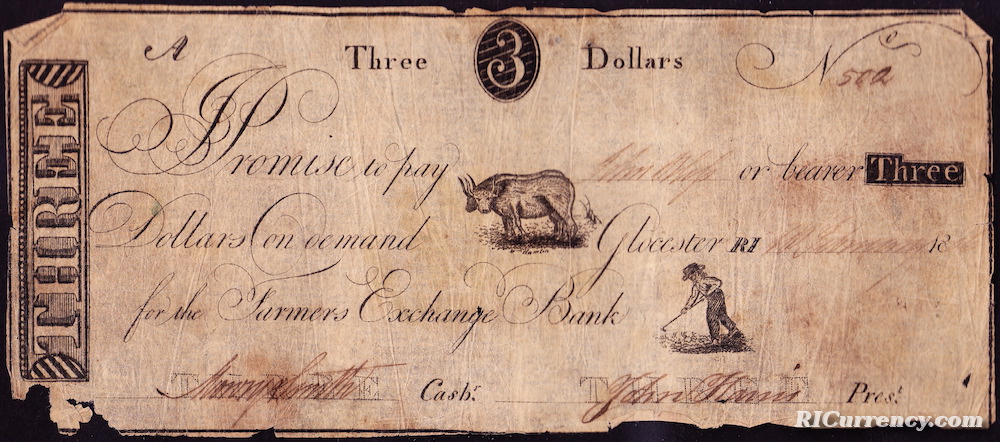 A Three 3 Dollars No 502
THREE
I Promise to pay or bearer Three
Dollars on demand Glocester RI 18
for the Farmers Exchange Bank
THREE Cashr. THREE John Harris Prest.
RICurrency.com